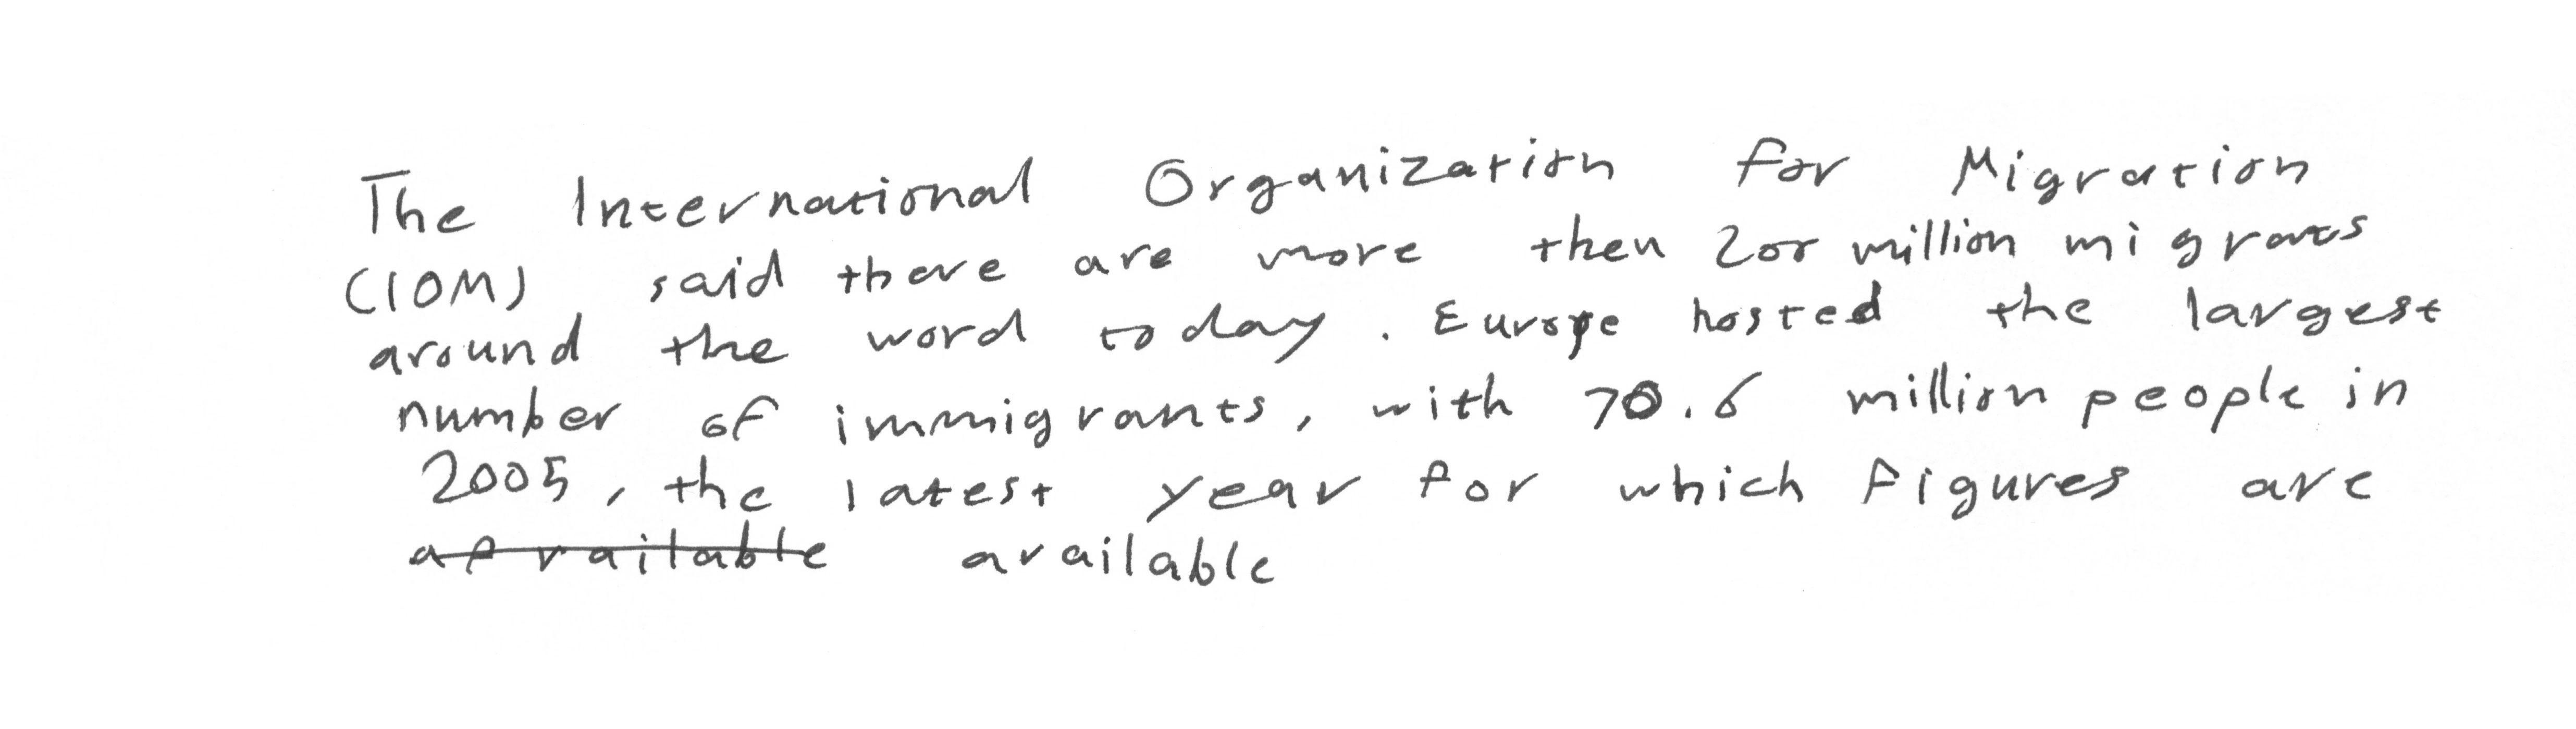 The International Organization for Migration
(IOM) said there are more then 200 million migrats
around the word today. Europe hosted the largest
number of immigrants, with 70.6 million people in
2005, the latest year for which figures are
available